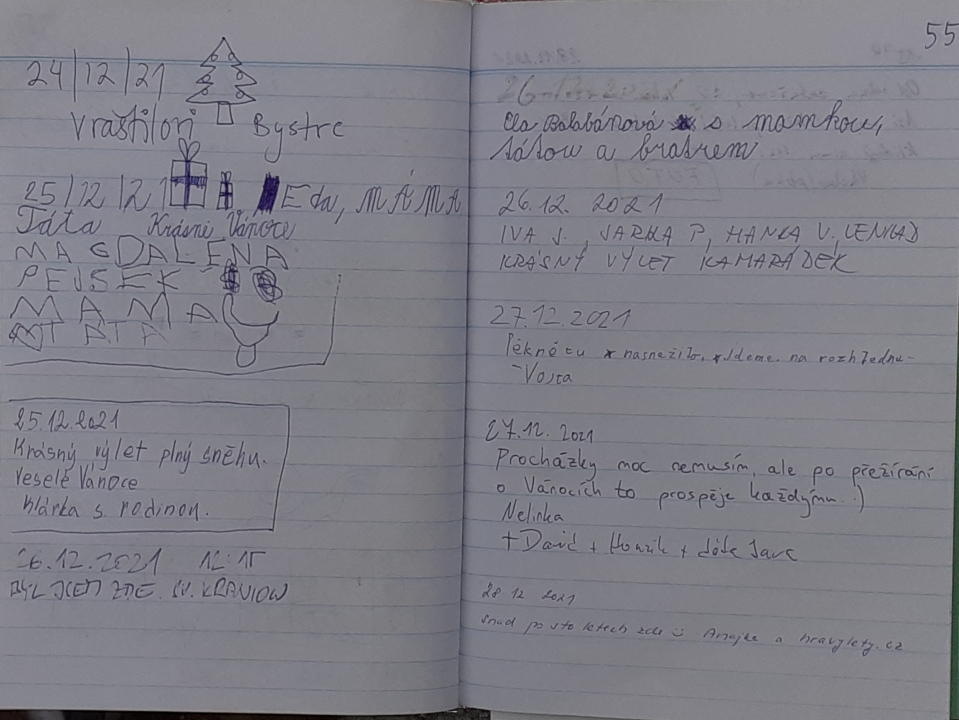 24/12/21
Vraštilovi Bystrc
25/12/21 Eda, MÁMA
Táta Krásné Vánoce
MAGDALÉNA
PEJSEK
MAMA
TATA
25.12.2021
Krásný výlet plný sněhu.
Veselé Vánoce
Klárka s rodinou.
26.12.2021 12:15
BYL JSEM ZDE. SV.
55
26.12.2021
Ela Balabánová s mamkou,
tátou a bratrem
26.12. 2021
IVA J., ŠARKA P, HANKA V, LENKA D
KRÁSNÝ VÝLET KAMARÁDEK
27.12.2021
Pěkně tu nasněžilo. Jdeme na rozhlednu-
-Vojta
27.12. 2021
Procházky moc nemusím, ale po přežírání
o Vánocích to prospěje každýmu :)
Nelinka
+ David + Honzík +
28 12 2021
Snad po sto letech zde a hravylety.cz